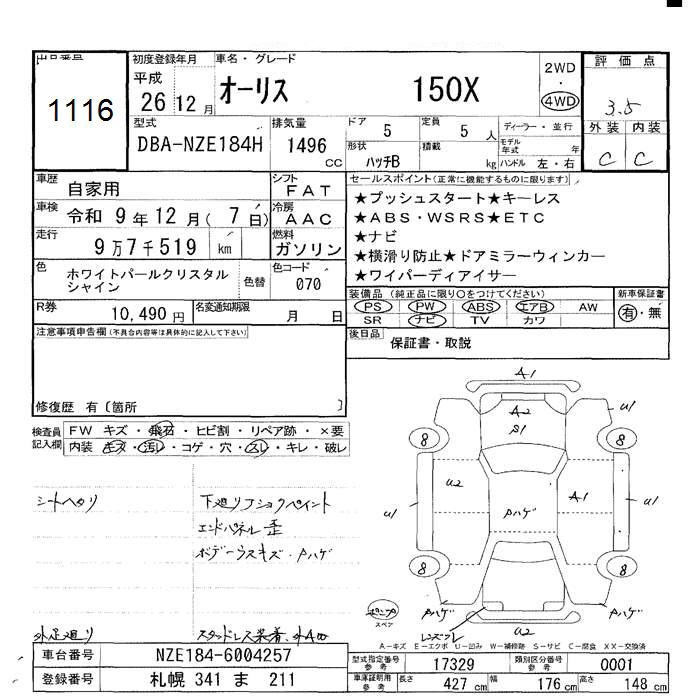 出品番号
1116
初度登録年月
平成
26 12 月
車名・グレード
オーリス 150X
2WD
・
4WD
評価点
3.5
外装 内装
C C
型式
DBA-NZE184H
排気量
1496
CC
ドア 5
定員 5 人
ディーラー・並行
モデル年式 年
形状
ハッチB
積載 kg
ハンドル 左・右
車歴 自家用
シフト
FAT
車検 令和 9 年 12 月( 7 日)
冷房
AAC
走行
9万7千519 km
燃料
ガソリン
色
ホワイトパールクリスタル
シャイン
色替
色コード
070
R券
10,490 円
名変通知期限
月 日
セールスポイント(正常に機能するものに限ります)
★プッシュスタート★キーレス
★ABS・WSRS★ETC
★ナビ
★横滑り防止★ドアミラーウィンカー
★ワイパーディアイサー
装備品(純正品に限り○をつけてください)
PS PW ABS エアB AW
SR ナビ TV カワ
新車保証書
有・無
後日品
保証書・取説
注意事項申告欄(不具合内容等は具体的に記入して下さい)
修復歴 有〔箇所 〕
検査員
記入欄
FW キズ・飛石・ヒビ割・リペア跡・×要
内装 キズ・汚レ・コゲ・穴・スレ・キレ・破レ
シートヘタリ
下廻リフショクペイント
エンドパネル歪
ボデーウスキズ・Pハゲ
外足廻り
スタッドレス装着、外4本
A1
A2
B1
U1
8
8
U2
Pハゲ
A1
U1
U1
8
8
スペア
Pハゲ
Pハゲ
レンズワレ
U2
A-キズ E-エクボ U-凹み W-補修跡 S-サビ C-腐食 XX-交換済
車台番号 NZE184-6004257
登録番号 札幌 341 ま 211
型式指定番号
参考
17329
類別区分番号
参考
0001
車庫証明用
参考
長さ 427 cm 幅 176 cm 高さ 148 cm